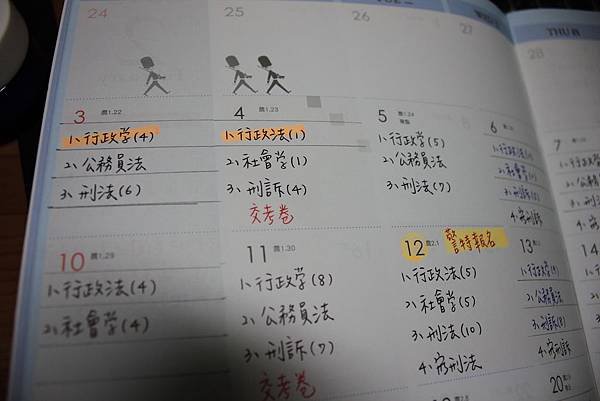 24
25
26
27
THU
28
3 農1.22
1、行政学(4)
2、公務員法
3、刑法(6)
4 農1.23
1、行政法(1)
2、社會学(1)
3、刑訴(4)
交考卷
5 農1.24
1、行政学(5)
2、公務員法
3、刑法(7)
6
1、行政法
2、社會学
3、刑訴
4、案刑訴
7
10 農1.29
1、行政法(4)
2、社會学(4)
11 農1.30
1、行政学(8)
2、公務員法
3、刑訴(7)
交考卷
12 農2.1 警特報名
1、行政法(5)
2、社會学(5)
3、刑法(10)
4、案刑法
13
1、行政学(9)
2、公務員法
3、刑訴(8)
4、案刑訴
14
20